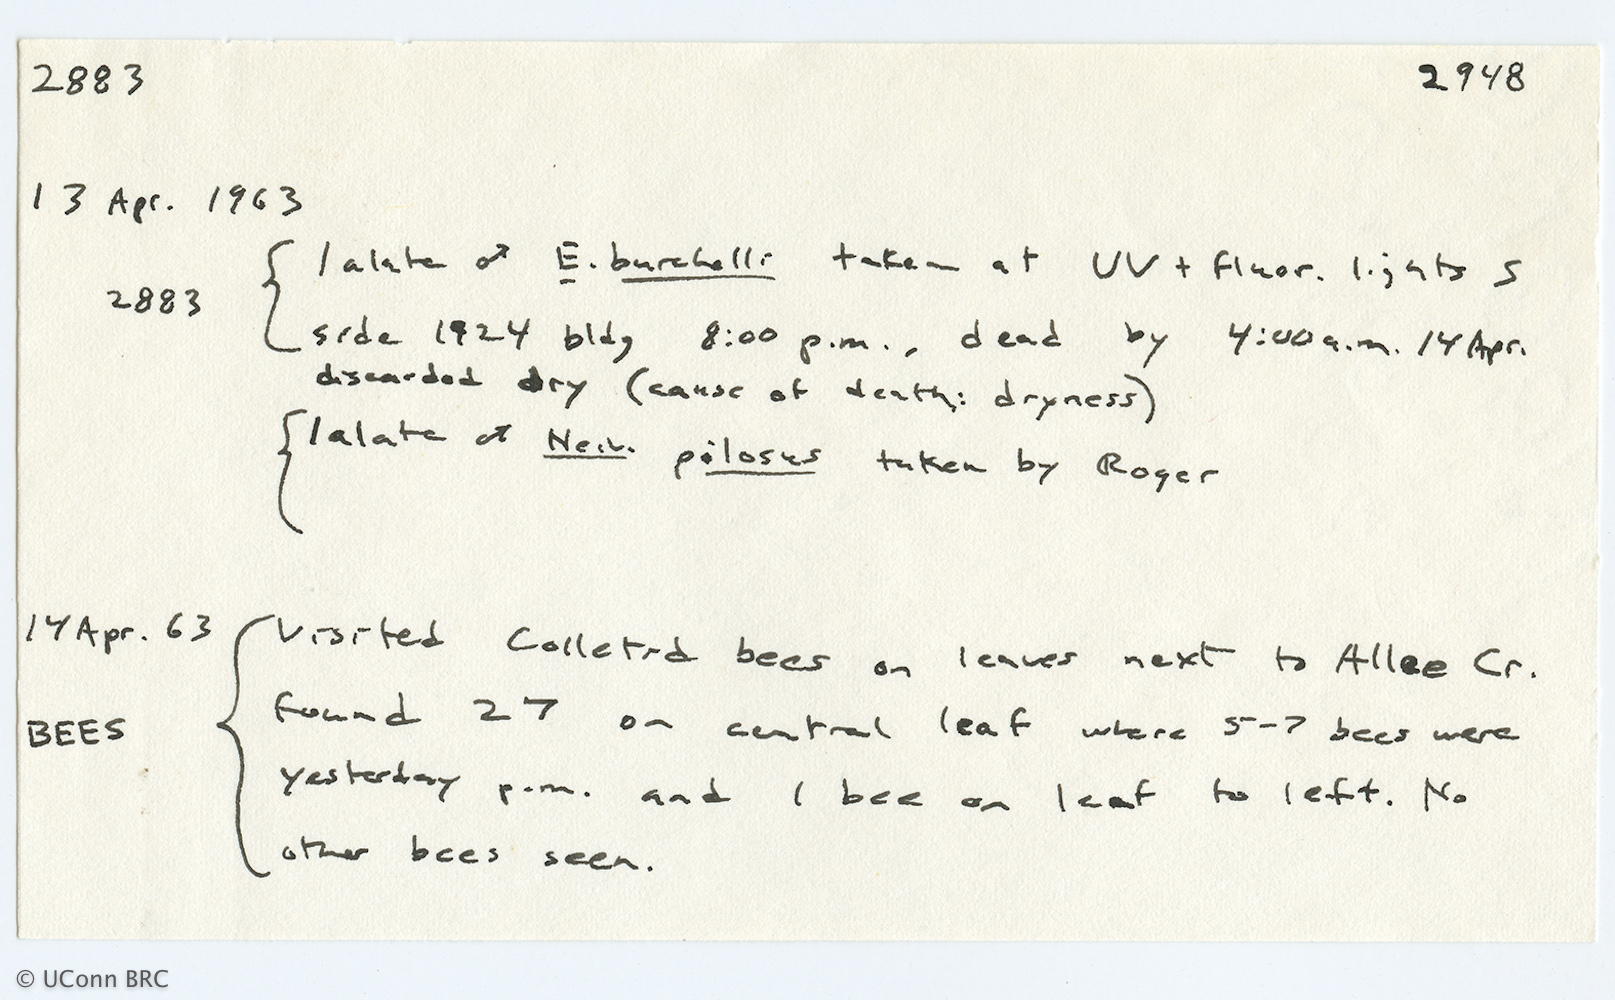 2883 2948
13 Apr. 1963
1 alate ♂ E. burchelli taken at UV + fluor. lights S
2883
side 1924 bldg 8:00 p.m., dead by 4:00 a.m. 14 Apr.
discarded dry (cause of death: dryness)
1 alate ♂ Neiv. pilosus taken by Roger
14 Apr. 63 Visited Colletid bees on leaves next to Allee Cr.
found 27 on central leaf where 5-7 bees were
BEES
yesterday p.m. and 1 bee on leaf to left. No
other bees seen.
© UConn BRC